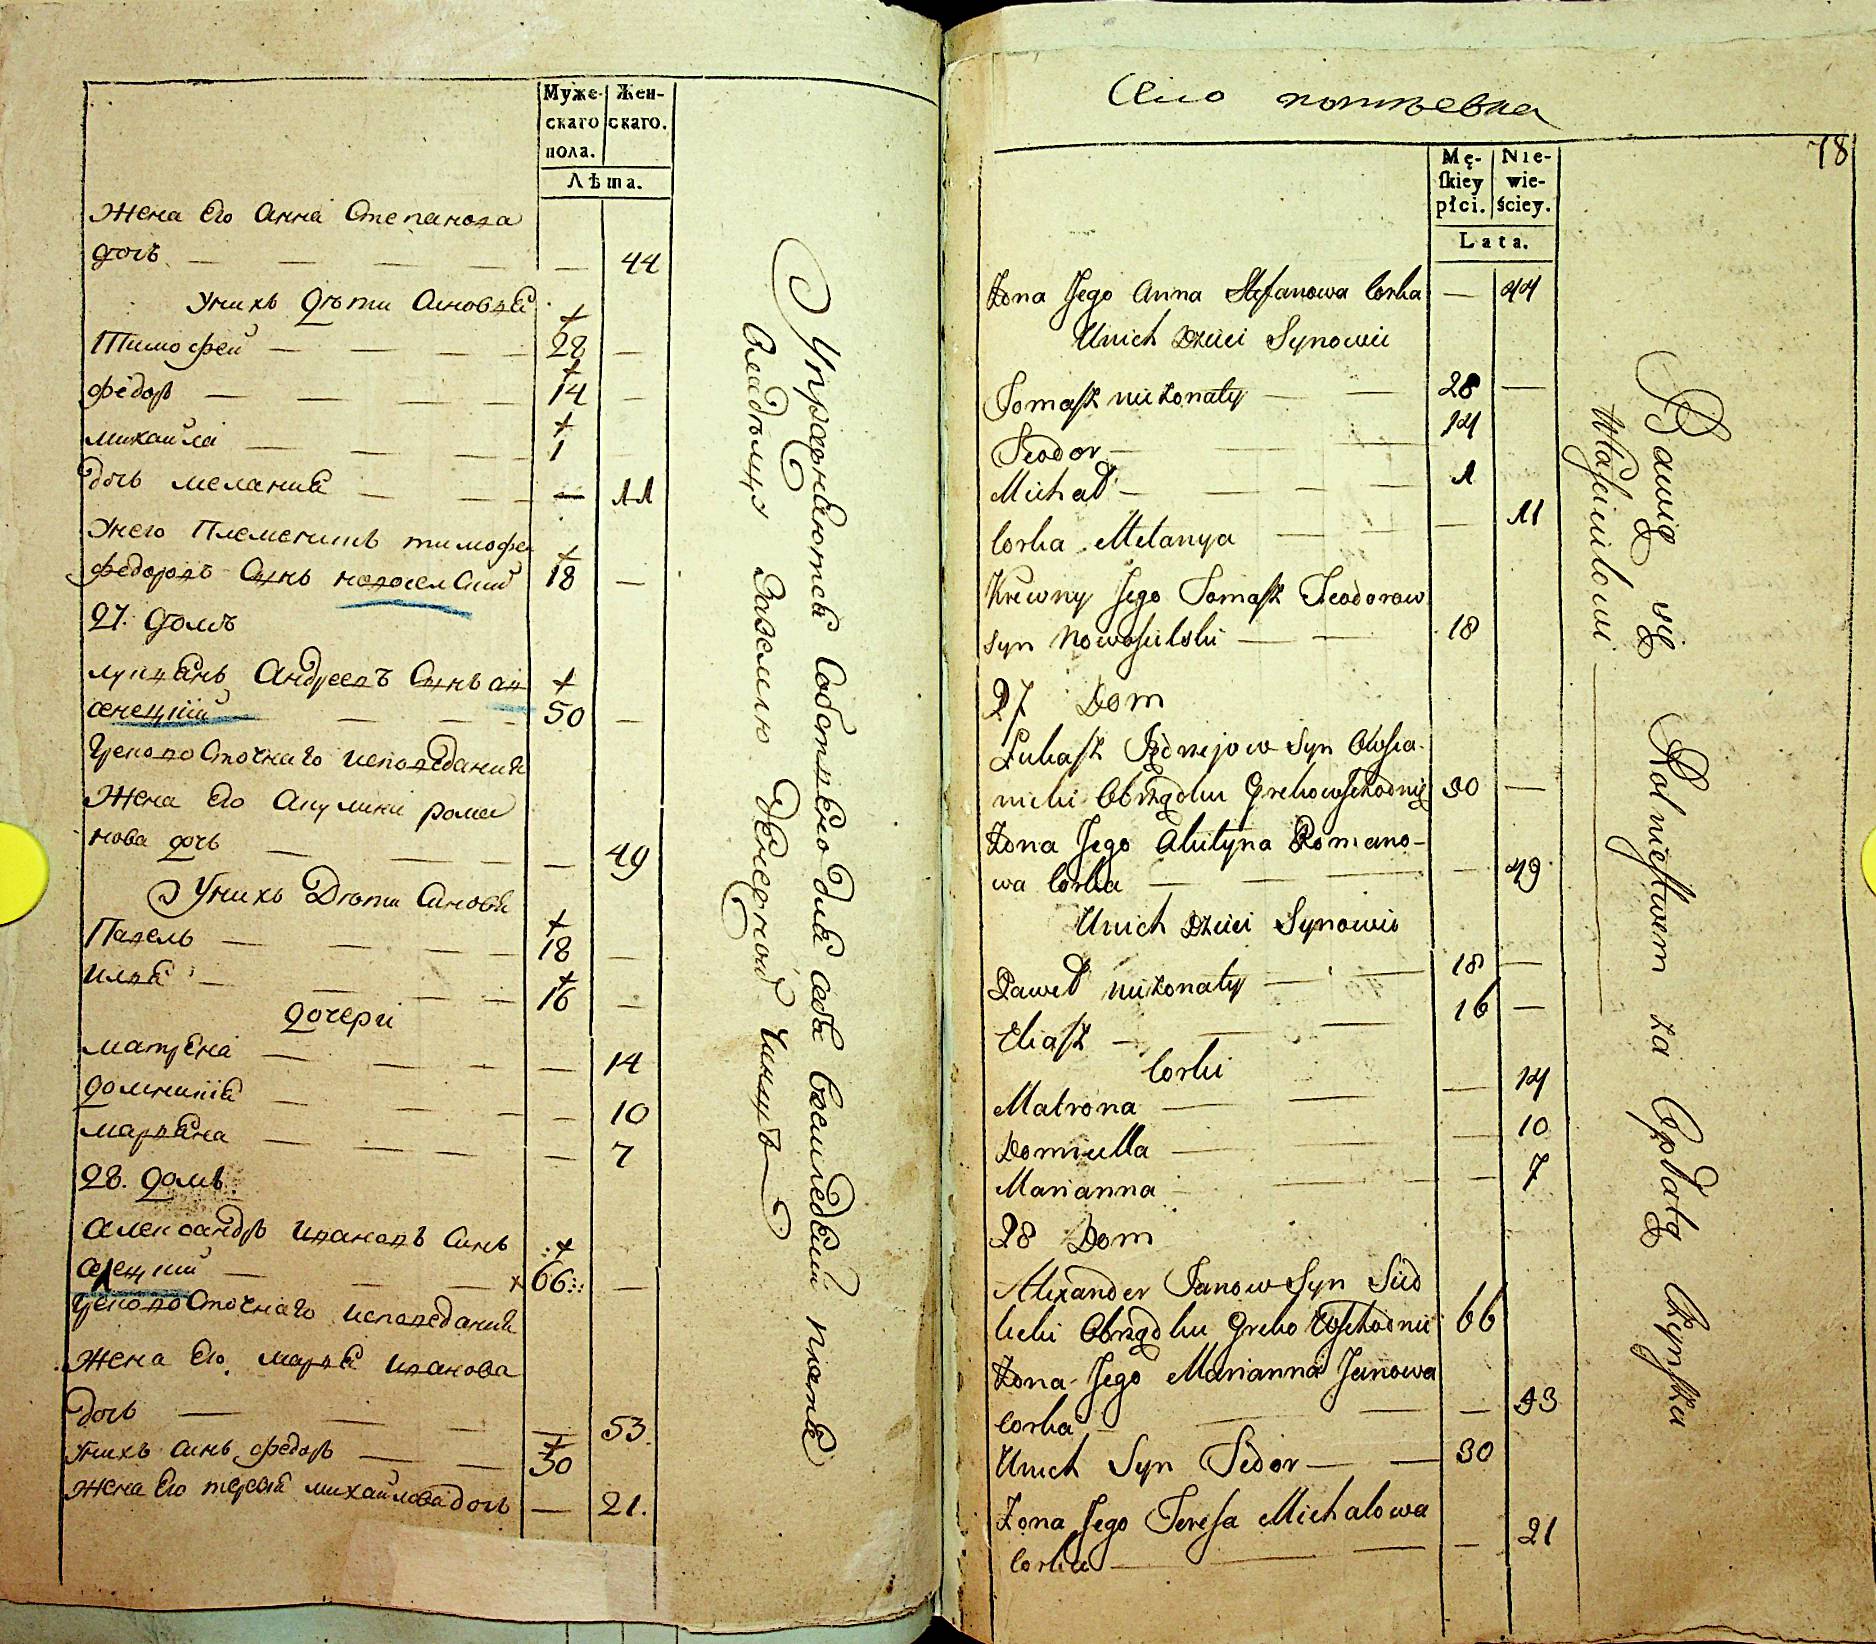 Муже-
скаго
пола.
Жен-
скаго.
Лѣта.
жена Его Анна Степанова
дочь — — — — — 44
Унихъ Дѣти Синовя
Тимофей — — — 28 —
Федоръ — — — 14 —
Михайла — — — 1
дочь мелания — — — — 11
Унего Племеникъ тимофей
федоровъ Синъ новоселский 18 —
27. домъ
лукиянъ Андреевъ Синъ ав
сенецкий — — — 50 —
Греково Сточнаго исповедания
Жена Его Акулина рома
нова дочь — — — — 49
Унихъ Дѣти Синовя
Павель — — — 18 —
илия — — — 16 —
дочери
матрена — — — — 14
домникия — — — — 10
марияна — — — — 7
28. домъ.
Александръ ивановъ Синъ
селецкий — — — 66 —
Греково Сточнаго исповедания
Жена Его мария иванова
дочь — — — — 53.
Унихъ синъ федоръ — — 30
Жена Его тереза михайлова дочь — 21.
Упражняются Собственно для себя Хозяйством платя
Владѣльцу Заземлю денежной чиншъ
Село
78
Mę-
skiey
płci.
Nie-
wie-
ściey.
Lata.
Żona Jego Anna Stefanowa Corka — 44
Unich Dzieci Synowie
Tomasz nieżonaty — — 28 —
Teodor — — 14
Michał — — — 1
Corka Melanya — — — 11
Krewny Jego Tomasz Teodorow
syn Nowosielski — — 18
27 Dom
Łukasz Jędrzejow Syn Owsia-
nicki Obrządku Grekowschodnie 50 —
Żona Jego Akulyna Romano-
wa Corka — — — — 49
Unich Dzieci Synowie
Paweł nieżonaty — — 18 —
Eliasz — — — 16 —
Corki
Matrona — — — — 14
Domicella — — — 10
Marianna — — — 7
28 Dom
Alexander Janow Syn Sied
lecki Obrządku Greko Wschodnie 66
Żona Jego Marianna Janowa
corka — — — 53
Unich Syn Fedor — — 30
Żona Jego Teressa Michałowa
Corka — — — 21
Bawią się Rolnictwem za Opłatą Czynszu
Właścicielowi —